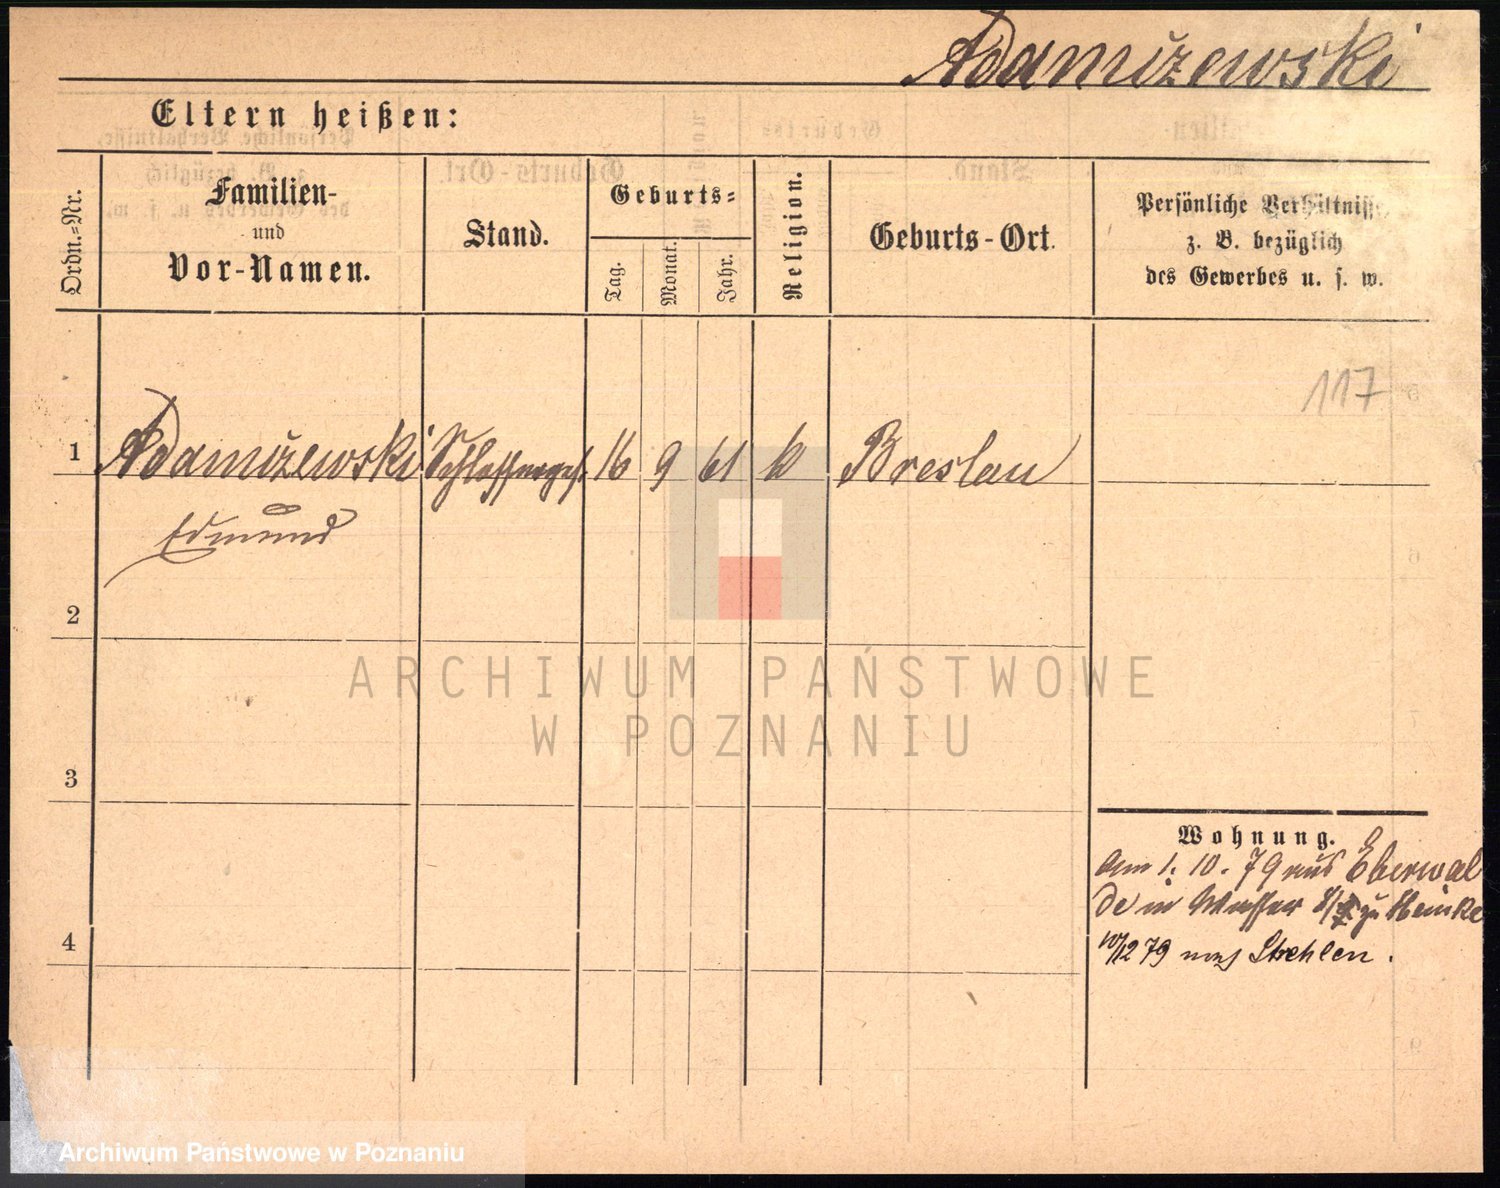 Adamiżewski
Eltern heißen:
Ordn.=Nr.
Familien-
und
Vor-Namen.
Stand.
Geburts=
Tag.
Monat.
Jahr.
Religion.
Geburts-Ort.
Persönliche Verhältnisse
z. B. bezüglich
des Gewerbes u. s. w.
117
1 Adamiżewski Schlosserges. 16 9 61 k Breslau
Edmund
2
ARCHIWUM PAŃSTWOWE
W POZNANIU
3
Wohnung.
Am 1. 10. 79 aus Eberwal
de in zu Heinke
4
10/12 79 nach Strehlen.
Archiwum Państwowe w Poznaniu